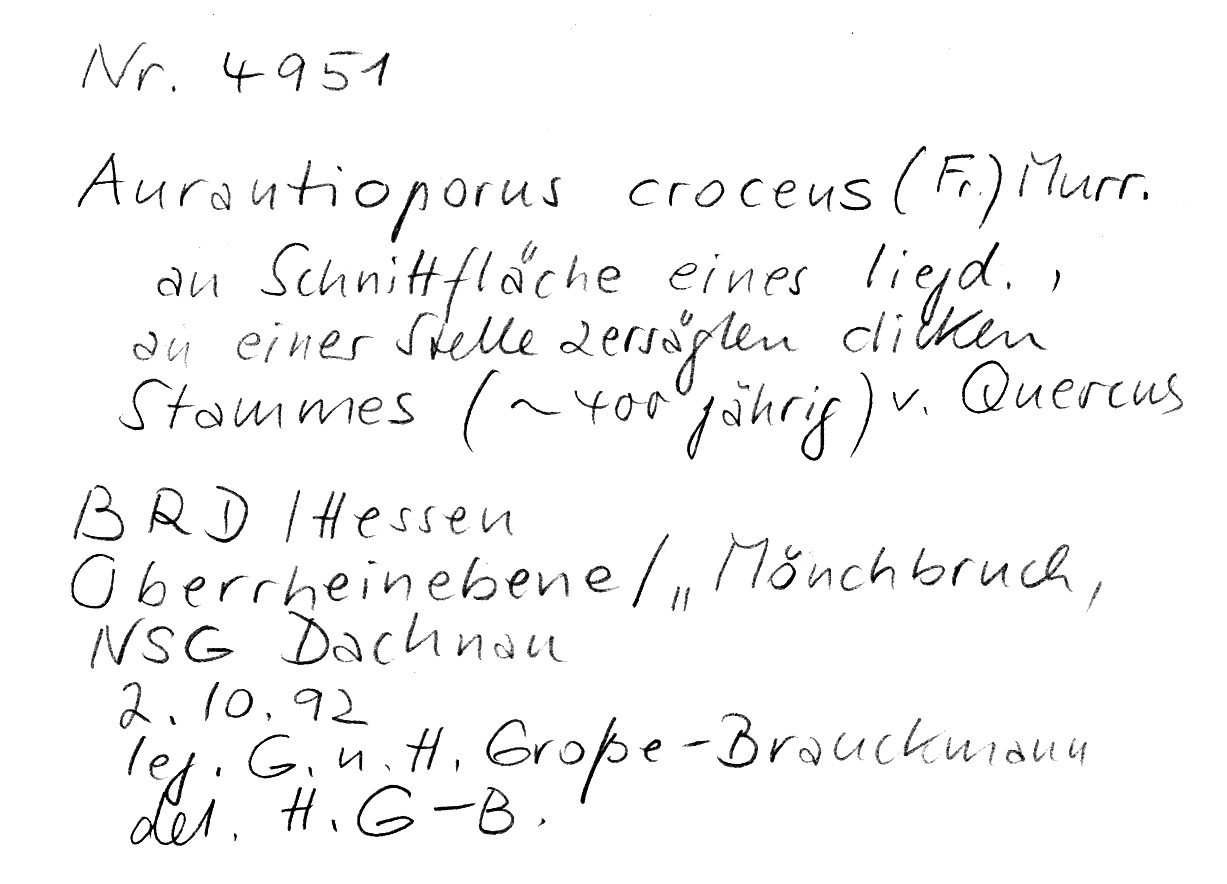 Nr. 4951
Aurantioporus croceus (Fr.) Murr.
an Schnittfläche eines liegd.,
an einer Stelle zersägten dicken
Stammes (~400 jährig) v. Quercus
BRD / Hessen
Oberrheinebene / „Mönchbruch,
NSG Dachnau
2.10.92
leg. G. u. H. Große-Brauckmann
det. H. G-B.